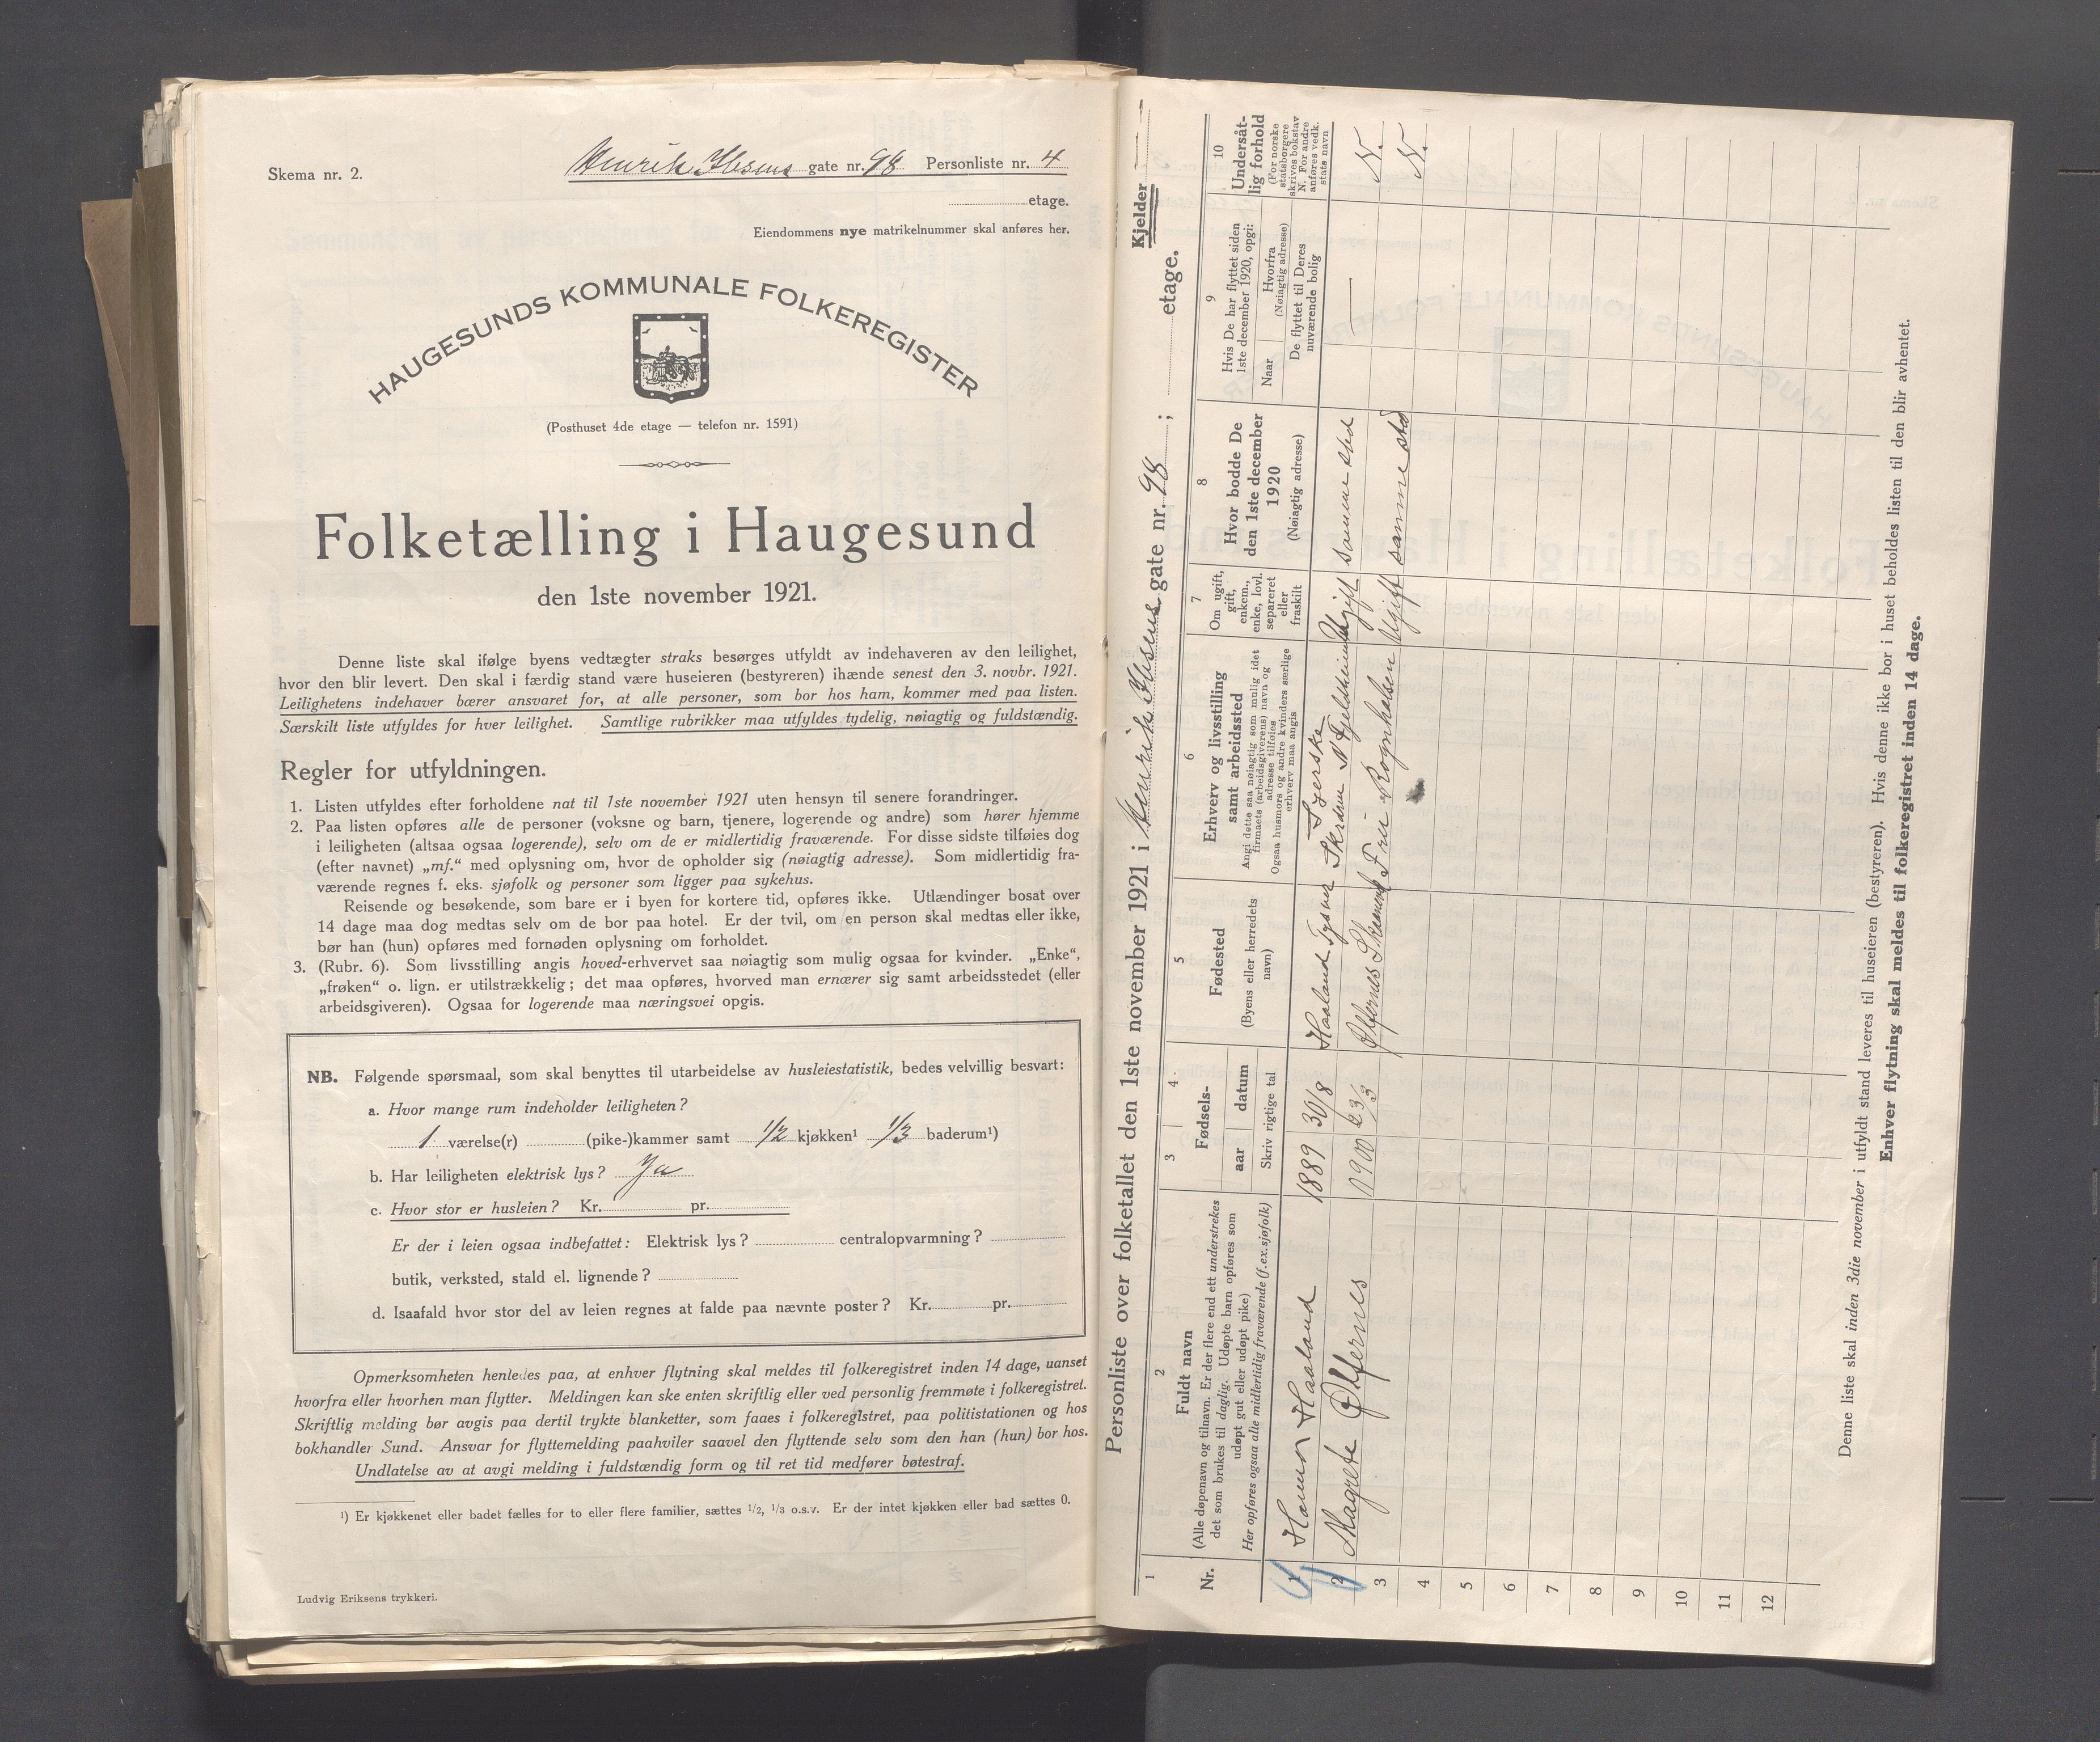 Skema nr. 2.
Henrik Ibsens gate nr. 98 Personliste nr. 4
etage.
Eiendommens nye matrikelnummer skal anføres her.
HAUGESUNDS KOMMUNALE FOLKEREGISTER
(Posthuset 4de etage — telefon nr. 1591)
Folketælling i Haugesund
den 1ste november 1921.
Denne liste skal ifølge byens vedtægter straks besørges utfyldt av indehaveren av den leilighet,
hvor den blir levert. Den skal i færdig stand være huseieren (bestyreren) ihænde senest den 3. novbr. 1921.
Leilighetens indehaver bærer ansvaret for, at alle personer, som bor hos ham, kommer med paa listen.
Særskilt liste utfyldes for hver leilighet. Samtlige rubrikker maa utfyldes tydelig, nøiagtig og fuldstændig.
Regler for utfyldningen.
1. Listen utfyldes efter forholdene nat til 1ste november 1921 uten hensyn til senere forandringer.
2. Paa listen opføres alle de personer (voksne og barn, tjenere, logerende og andre) som hører hjemme
i leiligheten (altsaa ogsaa logerende), selv om de er midlertidig fraværende. For disse sidste tilføies dog
(efter navnet) „mf.“ med oplysning om, hvor de opholder sig (nøiagtig adresse). Som midlertidig fra-
værende regnes f. eks. sjøfolk og personer som ligger paa sykehus.
Reisende og besøkende, som bare er i byen for kortere tid, opføres ikke. Utlændinger bosat over
14 dage maa dog medtas selv om de bor paa hotel. Er der tvil, om en person skal medtas eller ikke,
bør han (hun) opføres med fornøden oplysning om forholdet.
3. (Rubr. 6). Som livsstilling angis hoved-erhvervet saa nøiagtig som mulig ogsaa for kvinder. „Enke“,
„frøken“ o. lign. er utilstrækkelig; det maa opføres, hvorved man ernærer sig samt arbeidsstedet (eller
arbeidsgiveren). Ogsaa for logerende maa næringsvei opgis.
NB. Følgende spørsmaal, som skal benyttes til utarbeidelse av husleiestatistik, bedes velvillig besvart:
a. Hvor mange rum indeholder leiligheten?
1 værelse(r) (pike-)kammer samt 1/2 kjøkken¹ 1/3 baderum¹)
b. Har leiligheten elektrisk lys? Ja
c. Hvor stor er husleien? Kr. pr.
Er der i leien ogsaa indbefattet: Elektrisk lys? centralopvarmning?
butik, verksted, stald el. lignende?
d. Isaafald hvor stor del av leien regnes at falde paa nævnte poster? Kr. pr.
Opmerksomheten henledes paa, at enhver flytning skal meldes til folkeregistret inden 14 dage, uanset
hvorfra eller hvorhen man flytter. Meldingen kan ske enten skriftlig eller ved personlig fremmøte i folkeregistret.
Skriftlig melding bør avgis paa dertil trykte blanketter, som faaes i folkeregistret, paa politistationen og hos
bokhandler Sund. Ansvar for flyttemelding paahviler saavel den flyttende selv som den han (hun) bor hos.
Undlatelse av at avgi melding i fuldstændig form og til ret tid medfører bøtestraf.
¹) Er kjøkkenet eller badet fælles for to eller flere familier, sættes 1/2, 1/3 o.s.v. Er der intet kjøkken eller bad sættes 0.
Ludvig Eriksens trykkeri.
Kjelder
Personliste over folketallet den 1ste november 1921 i Henrik Ibsens gate nr. 98 ; etage.
1 2 3 4 5 6 7 8 9 10
Nr.
Fuldt navn
(Alle døpenavn og tilnavn. Er der flere end ett understrekes
det som brukes til daglig. Udøpte barn opføres som
udøpt gut eller udøpt pike)
Her opføres ogsaa alle midlertidig fraværende (f.ex. sjøfolk)
Fødsels-
aar
datum
Skriv rigtige tal
Fødested
(Byens eller herredets
navn)
Erhverv og livsstilling
samt arbeidssted
Angi dette saa nøiagtig som mulig idet
firmaets (arbeidsgiverens) navn og
adresse tilføies
Ogsaa husmors og andre kvinders særlige
erhverv maa angis
Om ugift,
gift,
enkem.,
enke, lovl.
separeret
eller
fraskilt
Hvor bodde De
den 1ste december
1920
(Nøiagtig adresse)
Hvis De har flyttet siden
1ste december 1920, opgi:
Naar
Hvorfra
(Nøiagtig adresse)
De flyttet til Deres
nuværende bolig
Undersåt-
lig forhold
(For norske
statsborgere
skrives bokstav
N. For andre
anføres vedk.
stats navn
1 Hanna Haaland 1889 30/8 Haaland Tysvær Syerske Ugift samme sted — N.
2 Magrete Ølfernes 1900 23/3 Ølfernes Frue Rognhalsen Ugift samme sted N.
3
4
5
6
7
8
9
10
11
12
Denne liste skal inden 3die november i utfyldt stand leveres til huseieren (bestyreren). Hvis denne ikke bor i huset beholdes listen til den blir avhentet.
Enhver flytning skal meldes til folkeregistret inden 14 dage.